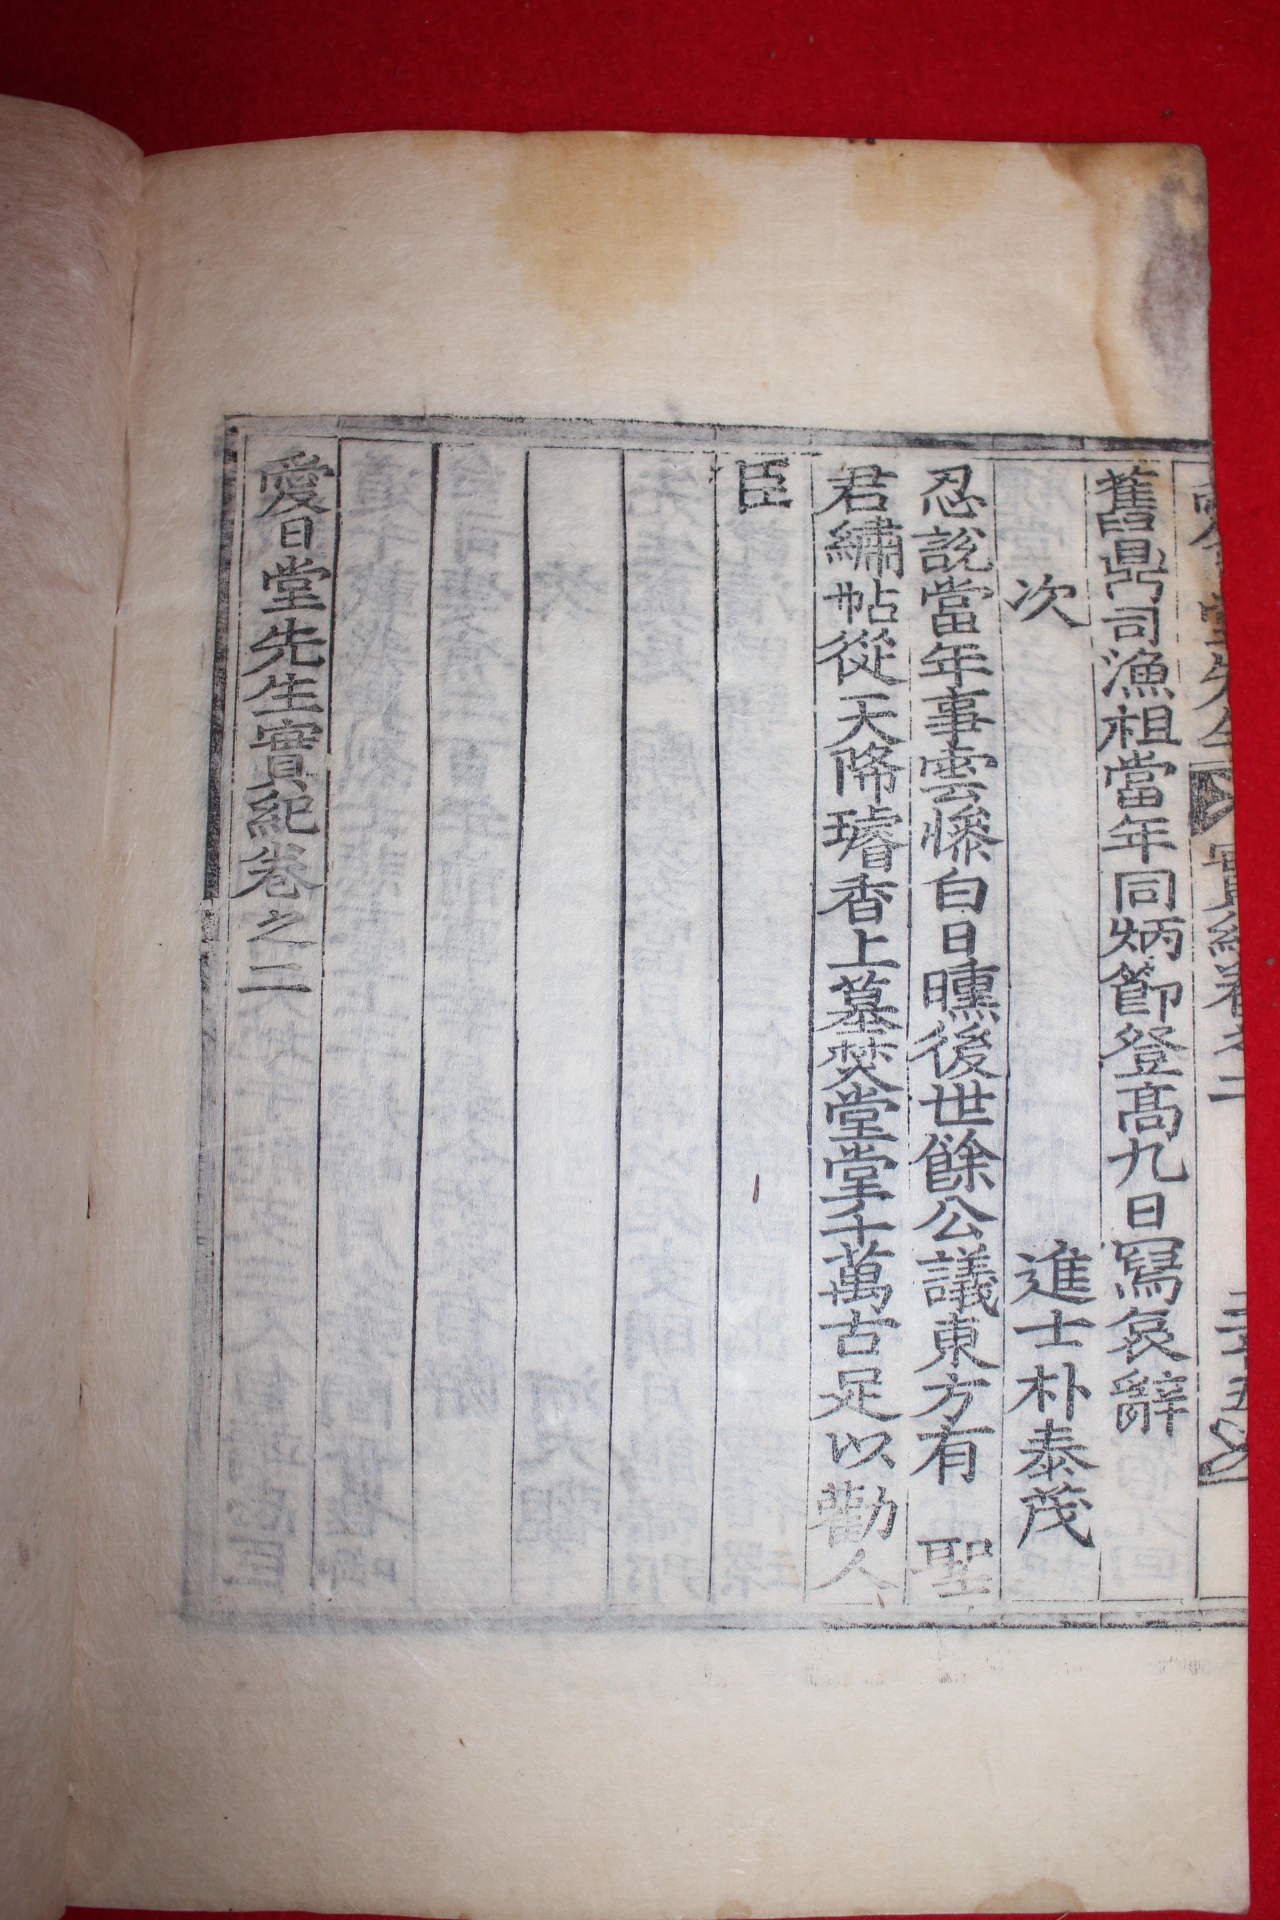 舊鼎司漁祖當年同炳節登高九日寫哀辭
次 進士朴泰茂
忍說當年事雲慘白日曛後世餘公議東方有 聖
君繡帖從天降璿香上墓焚堂堂千萬古足以勸人
臣
愛日堂先生實紀卷之二